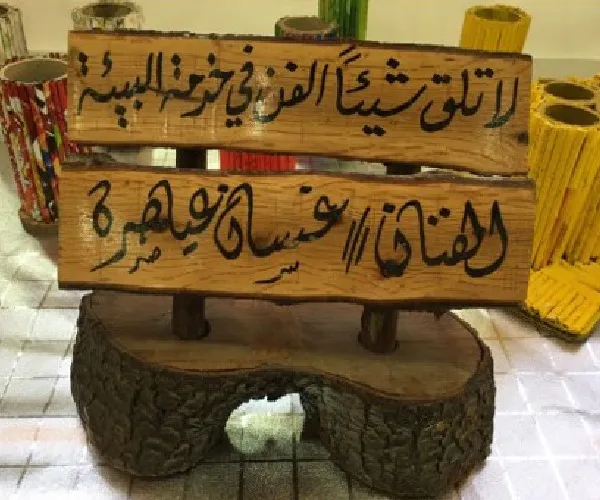 لا تلق شيئاً الفن في خدمة البيئة
الفنان // غسان عياصرة